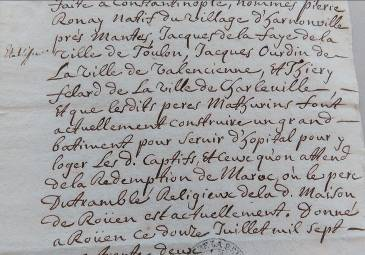 faite a Constantinople, nommés pierre
Ronay Natif du village d'harnonville
prés Mantes, Jacques de la faye de la
ville de Toulon, Jacques Ourdin de
La ville de Valencienne, Et Thiery
felard de La ville de Charleville
Et que lesdits peres Mathurins font
actuellement construire un grand
batiment pour servir d'hopital pour y
loger Les d. Captifs, Et ceux qu'on attend
de la Redemption de Maroc, ou le pere
Dutramble Religieux de la d. Maison
de Roüen est actuellement. Donné
a Roüen ce douze Juillet mil sept
trente deux